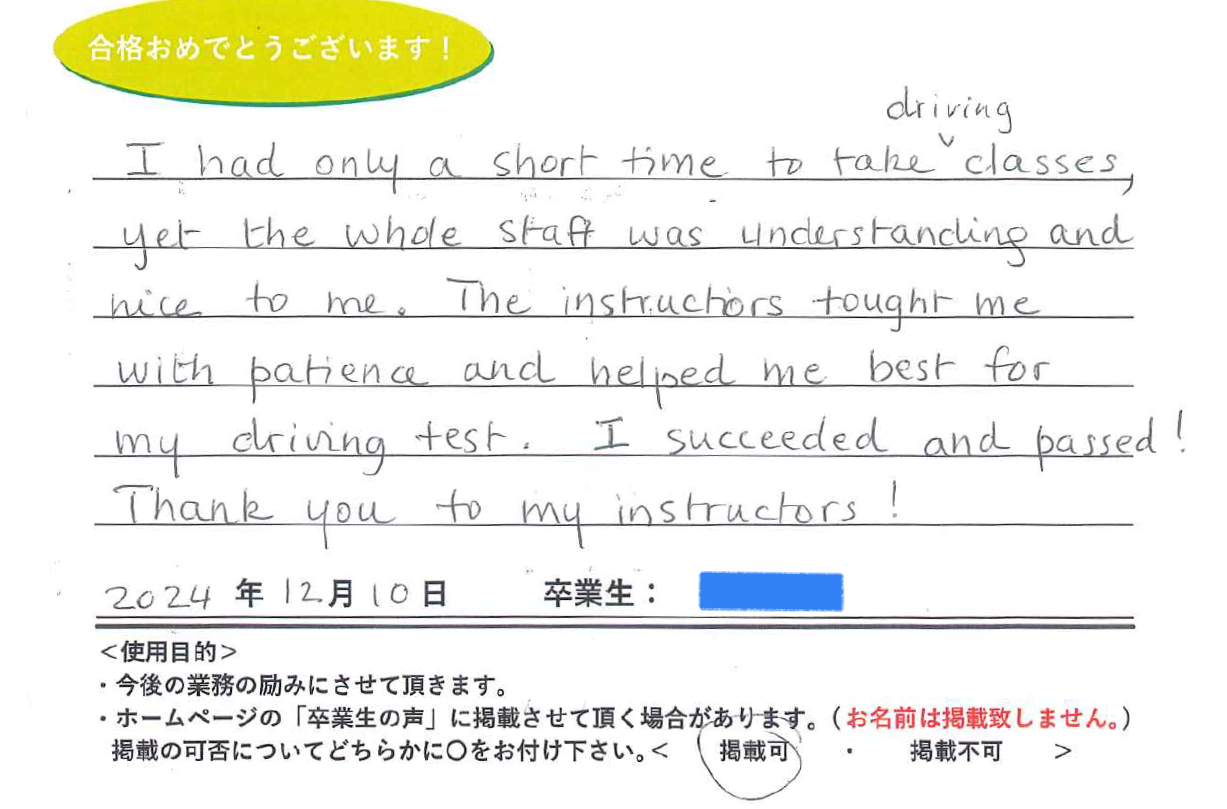 合格おめでとうございます！
driving
I had only a short time to take ˅ classes,
yet the whole staff was understanding and
nice to me. The instructors tought me
with patience and helped me best for
my driving test. I succeeded and passed!
Thank you to my instructors!
2024 年 12月 10日 卒業生：
＜使用目的＞
・今後の業務の励みにさせて頂きます。
・ホームページの「卒業生の声」に掲載させて頂く場合があります。（お名前は掲載致しません。）
掲載の可否についてどちらかに〇をお付け下さい。＜ 掲載可 ・ 掲載不可 ＞